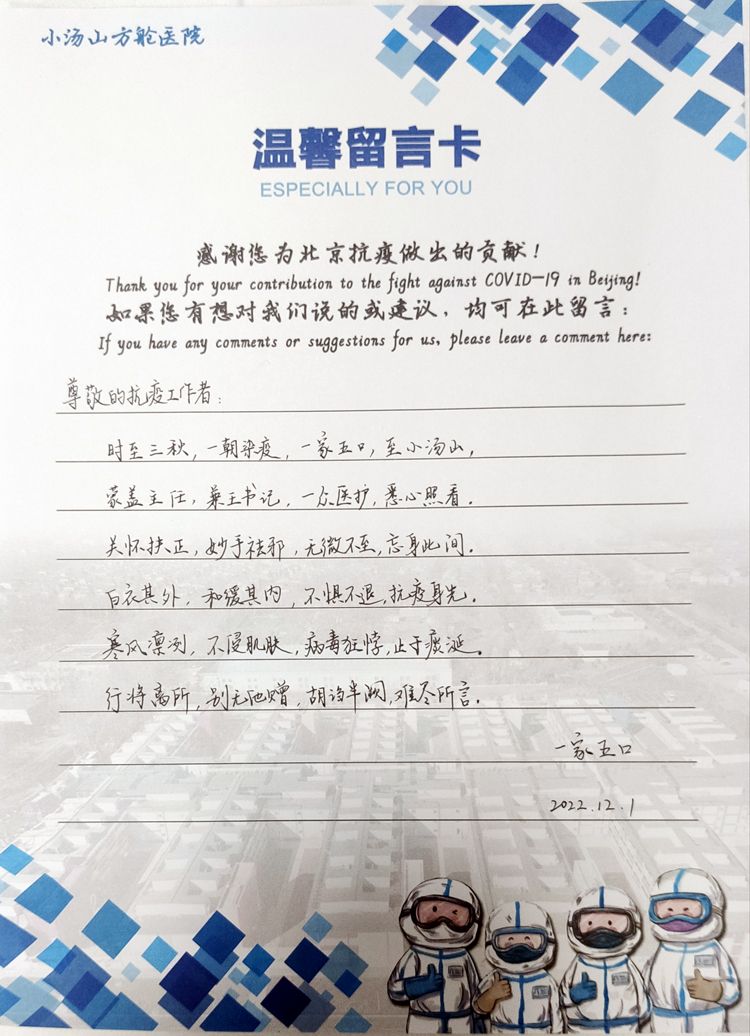 小汤山方舱医院
温馨留言卡
ESPECIALLY FOR YOU
感谢您为北京抗疫做出的贡献！
Thank you for your contribution to the fight against COVID-19 in Beijing!
如果您有想对我们说的或建议，均可在此留言：
If you have any comments or suggestions for us, please leave a comment here:
尊敬的抗疫工作者：
时至三秋，一朝染疫，一家五口，至小汤山，
蒙盖主任，兼王书记，一众医护，悉心照看。
关怀扶正，妙手祛邪，无微不至，忘身此间。
白衣其外，和缓其内，不惧不退，抗疫身先。
寒风凛冽，不侵肌肤，病毒狂悖，止于痰涎。
行将离所，别无他赠，胡诌半阕，难尽所言。
一家五口
2022.12.1